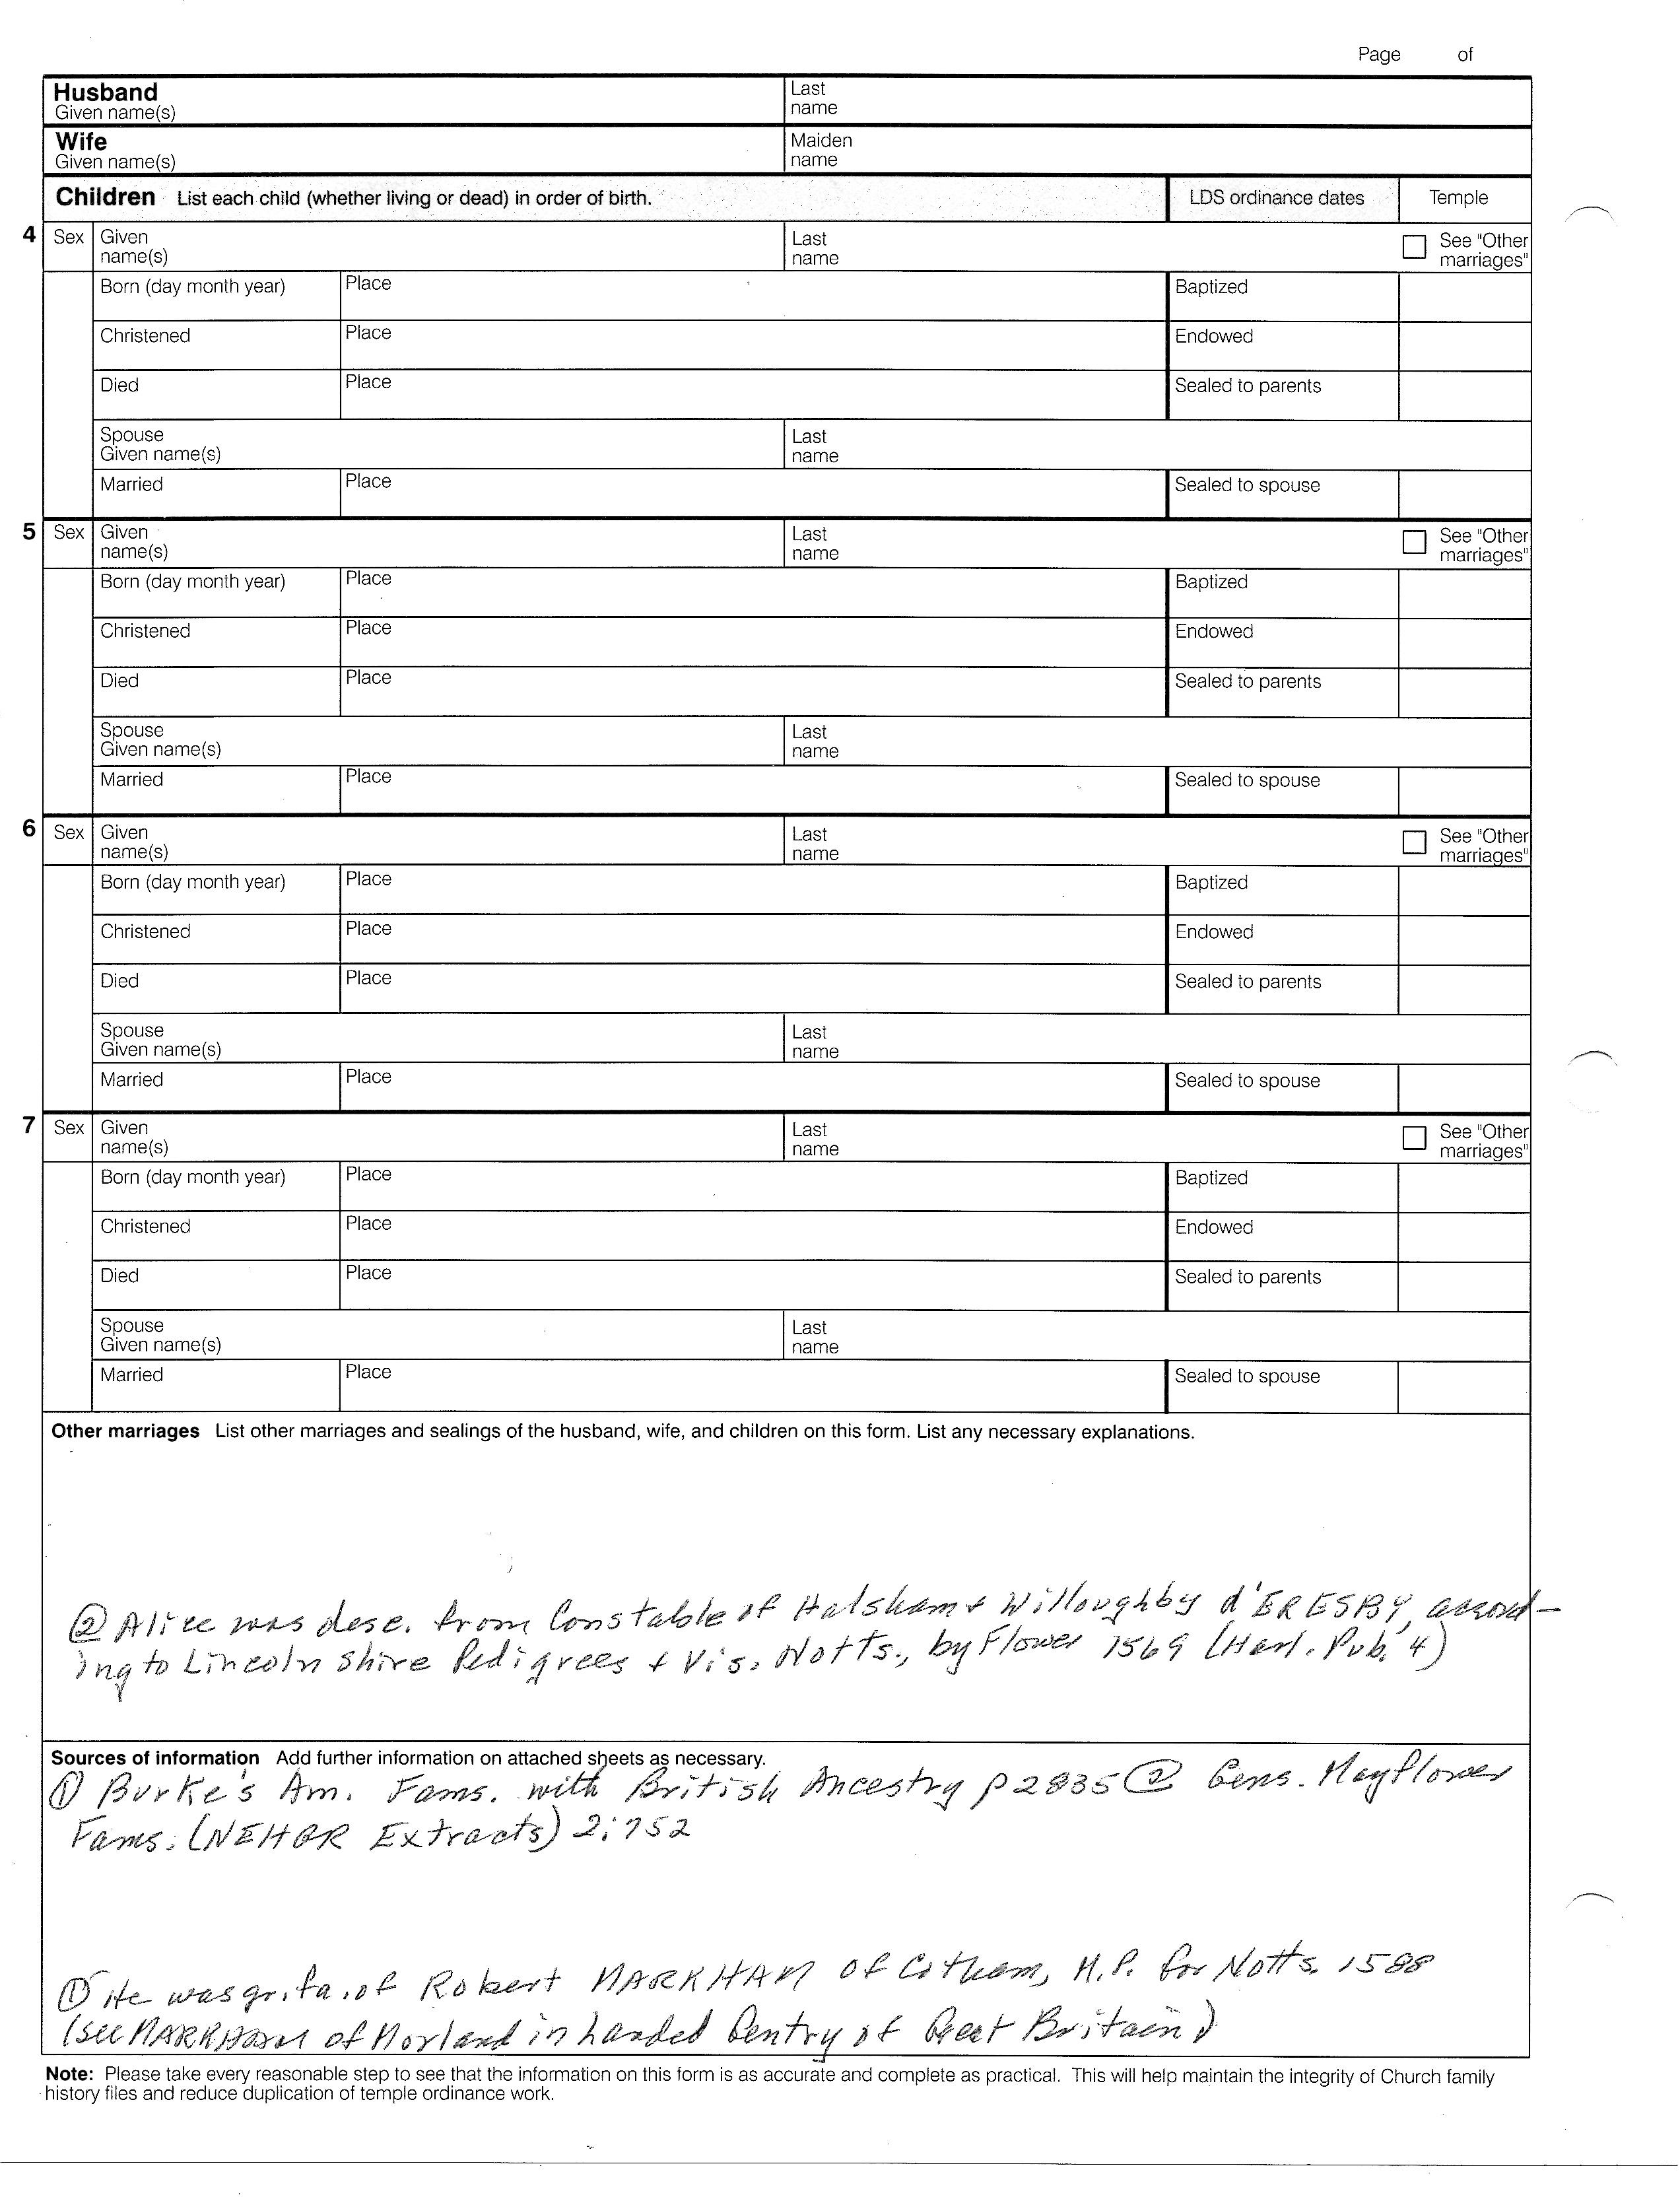 Page of
Husband
Given name(s)
Last
name
Wife
Given name(s)
Maiden
name
Children List each child (whether living or dead) in order of birth.
LDS ordinance dates
Temple
4 Sex Given
name(s)
Last
name
See "Other
marriages"
Born (day month year) Place Baptized
Christened Place Endowed
Died Place Sealed to parents
Spouse
Given name(s)
Last
name
Married Place Sealed to spouse
5 Sex Given
name(s)
Last
name
See "Other
marriages"
Born (day month year) Place Baptized
Christened Place Endowed
Died Place Sealed to parents
Spouse
Given name(s)
Last
name
Married Place Sealed to spouse
6 Sex Given
name(s)
Last
name
See "Other
marriages"
Born (day month year) Place Baptized
Christened Place Endowed
Died Place Sealed to parents
Spouse
Given name(s)
Last
name
Married Place Sealed to spouse
7 Sex Given
name(s)
Last
name
See "Other
marriages"
Born (day month year) Place Baptized
Christened Place Endowed
Died Place Sealed to parents
Spouse
Given name(s)
Last
name
Married Place Sealed to spouse
Other marriages List other marriages and sealings of the husband, wife, and children on this form. List any necessary explanations.
② Alice was desc. from Constable of Halsham & Willoughby d'ERESBY, accord-
ing to Lincolnshire Pedigrees & Vis. Notts., by Flower 1569 (Harl. Pub. 4)
Sources of information Add further information on attached sheets as necessary.
① Burke's Am. Fams. with British Ancestry p 2835 ② Gens. Mayflower
Fams. (NEHGR Extracts) 2:752
① He was gr. fa. of Robert MARKHAM of Cotham, M.P. for Notts. 1588
(see MARKHAM of Morland in Landed Gentry of Great Britain)
Note: Please take every reasonable step to see that the information on this form is as accurate and complete as practical. This will help maintain the integrity of Church family
history files and reduce duplication of temple ordinance work.